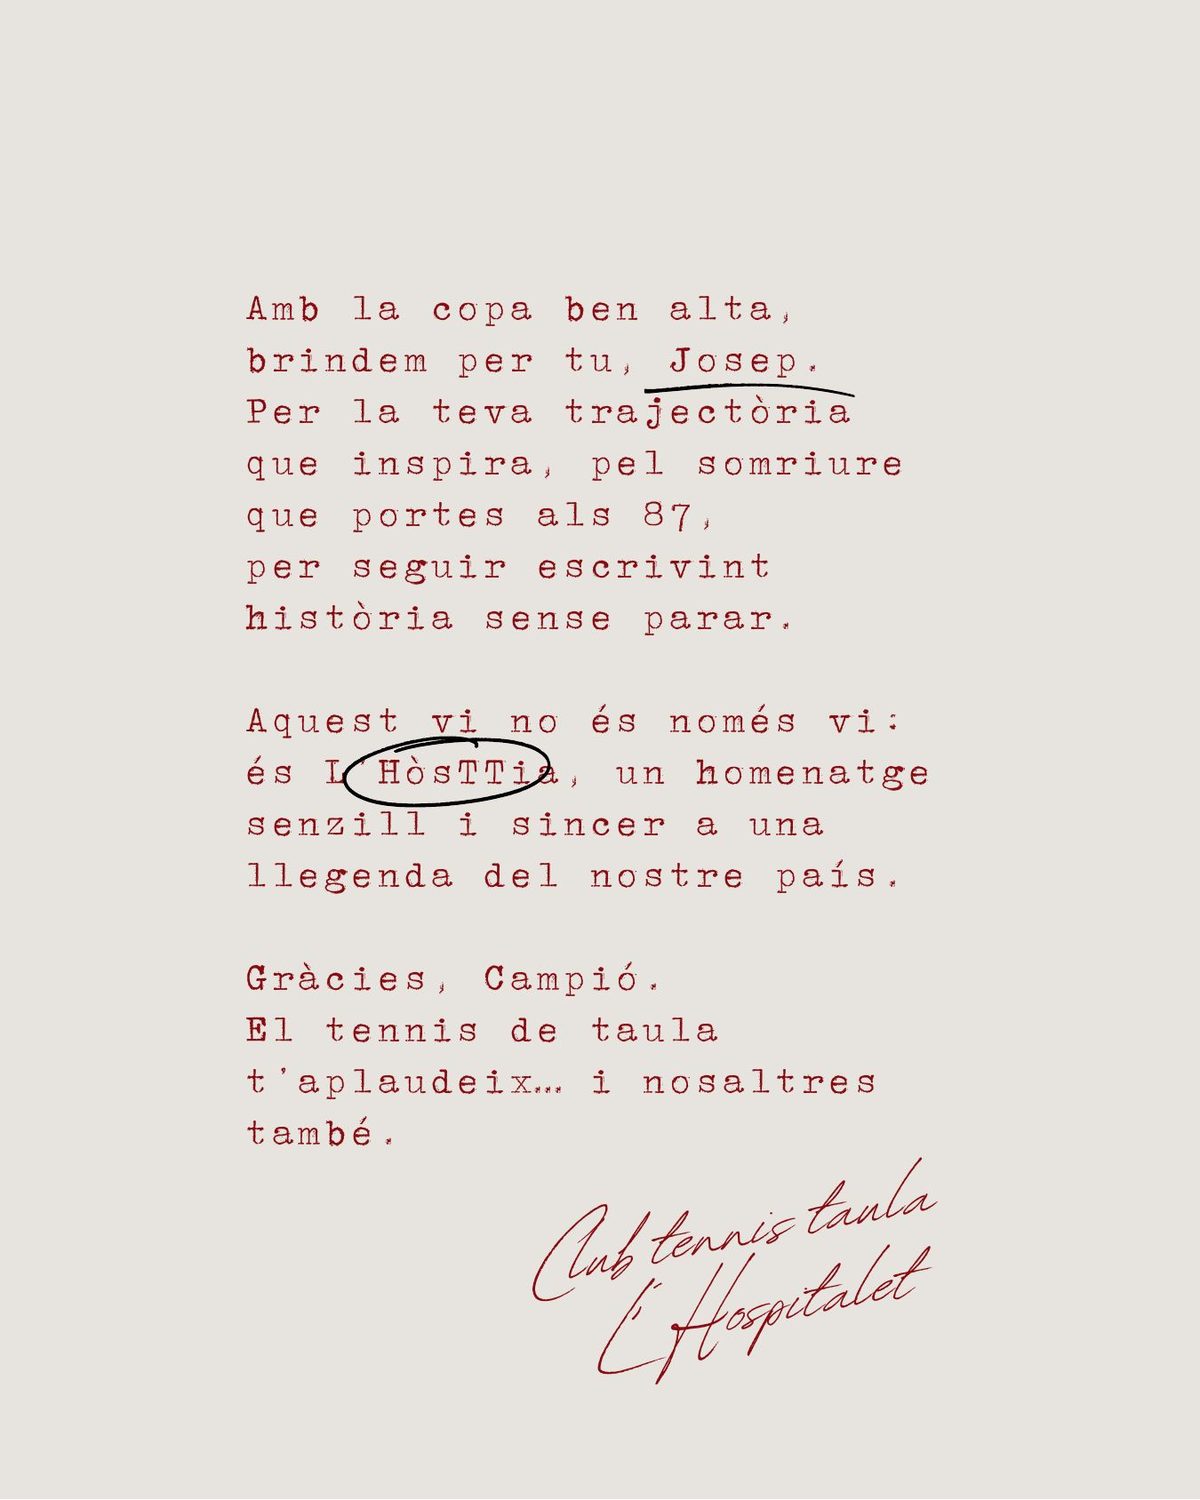 Amb la copa ben alta,
brindem per tu, Josep.
Per la teva trajectòria
que inspira, pel somriure
que portes als 87,
per seguir escrivint
història sense parar.
Aquest vi no és només vi:
és L'HòsTTia, un homenatge
senzill i sincer a una
llegenda del nostre país.
Gràcies, Campió.
El tennis de taula
t'aplaudeix... i nosaltres
també.
Club tennis taula
L'Hospitalet